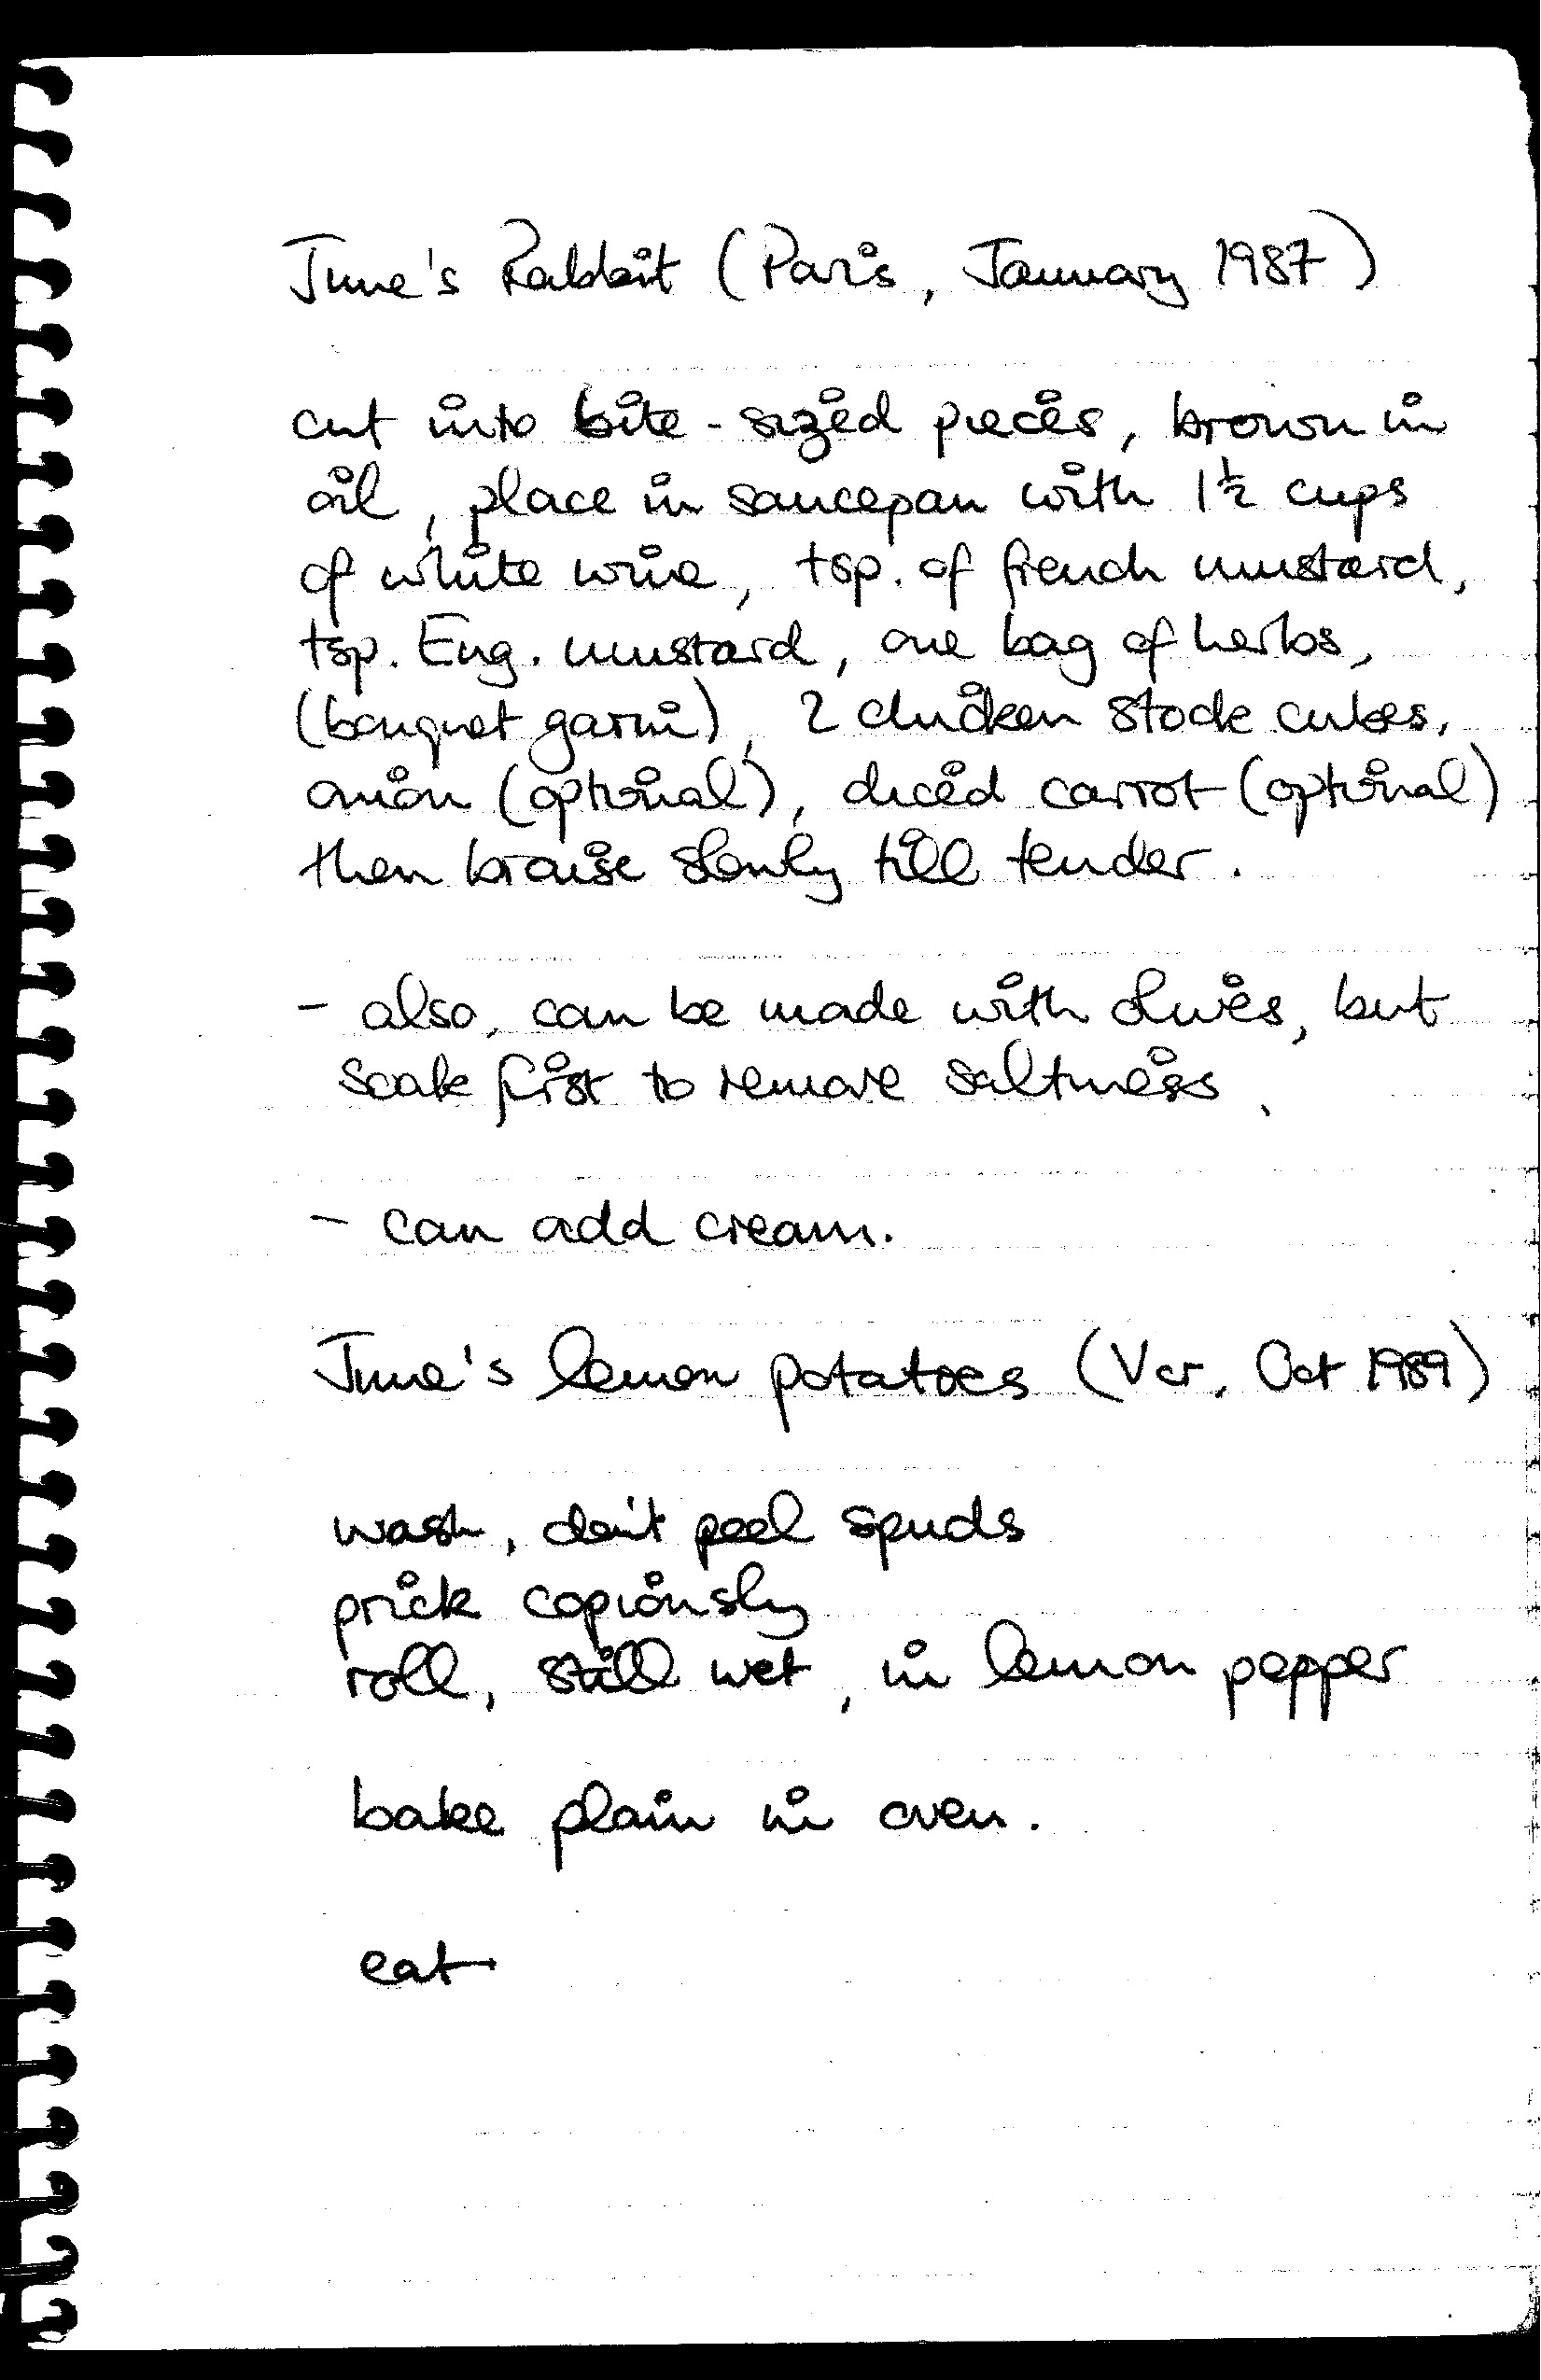 June's Rabbit (Paris, January 1987)
cut into bite-sized pieces, brown in
oil, place in saucepan with 1½ cups
of white wine, tsp. of french mustard,
tsp. Eng. mustard, one bag of herbs,
(bouquet garni), 2 chicken stock cubes,
onion (optional), diced carrot (optional)
then braise slowly till tender.
- also, can be made with olives, but
soak first to remove saltness.
- can add cream.
June's lemon potatoes (Ver, Oct 1989)
wash, don't peel spuds
prick copiously
roll, still wet, in lemon pepper
bake plain in oven.
eat